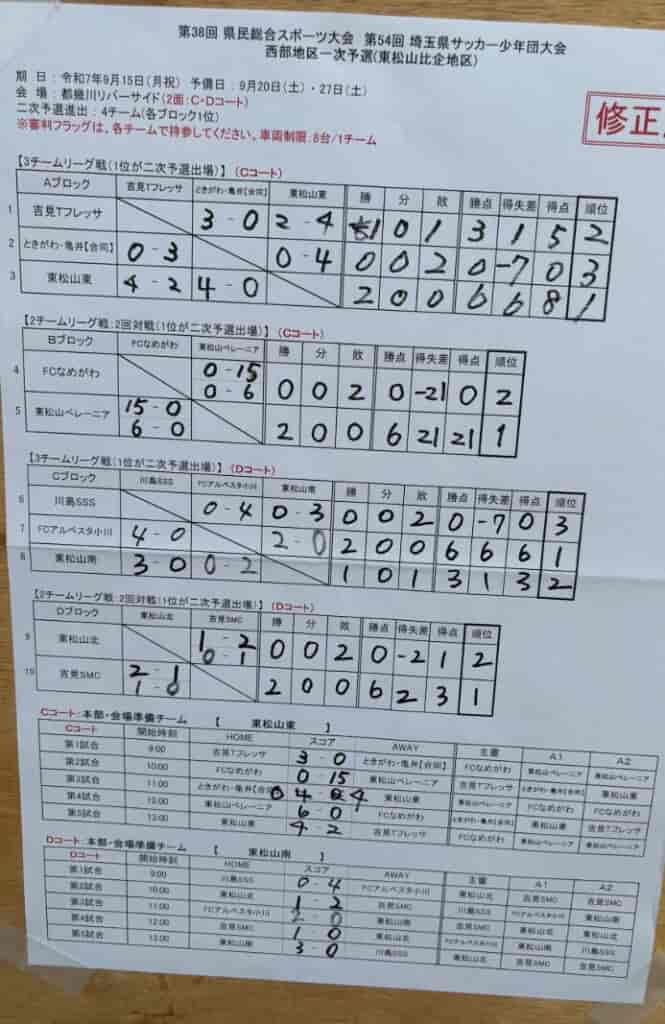 第38回 県民総合スポーツ大会 第54回 埼玉県サッカー少年団大会
西部地区一次予選(東松山比企地区)
期 日：令和7年9月15日(月祝) 予備日：9月20日(土)・27日(土)
会 場：都幾川リバーサイド(2面：C・Dコート)
二次予選進出：4チーム(各ブロック1位)
※審判フラッグは、各チームで持参してください。車両制限：8台/1チーム
修正
【3チームリーグ戦(1位が二次予選出場)】 (Cコート)
Aブロック 吉見Tフレッサ ときがわ・亀井【合同】 東松山東 勝 分 敗 勝点 得失差 得点 順位
1 吉見Tフレッサ 3-0 2-4 1 0 1 3 1 5 2
2 ときがわ・亀井【合同】 0-3 0-4 0 0 2 0 -7 0 3
3 東松山東 4-2 4-0 2 0 0 6 6 8 1
【2チームリーグ戦：2回対戦(1位が二次予選出場)】 (Cコート)
Bブロック FCなめがわ 東松山ペレーニア 勝 分 敗 勝点 得失差 得点 順位
4 FCなめがわ 0-15 0 0 2 0 -21 0 2
0-6
5 東松山ペレーニア 15-0 2 0 0 6 21 21 1
6-0
【3チームリーグ戦(1位が二次予選出場)】 (Dコート)
Cブロック 川島SSS FCアルベスタ小川 東松山南 勝 分 敗 勝点 得失差 得点 順位
6 川島SSS 0-4 0-3 0 0 2 0 -7 0 3
7 FCアルベスタ小川 4-0 2-0 2 0 0 6 6 6 1
8 東松山南 3-0 0-2 1 0 1 3 1 3 2
【2チームリーグ戦：2回対戦(1位が二次予選出場)】 (Dコート)
Dブロック 東松山北 吉見SMC 勝 分 敗 勝点 得失差 得点 順位
9 東松山北 1-2 0 0 2 0 -2 1 2
0-1
10 吉見SMC 2-1 2 0 0 6 2 3 1
1-0
Cコート：本部・会場準備チーム 【 東松山東 】
Cコート 開始時刻 HOME スコア AWAY 主審 A1 A2
第1試合 9:00 吉見Tフレッサ 3-0 ときがわ・亀井【合同】 FCなめがわ 東松山ペレーニア 東松山ペレーニア
第2試合 10:00 FCなめがわ 0-15 東松山ペレーニア 吉見Tフレッサ ときがわ・亀井【合同】 東松山東
第3試合 11:00 ときがわ・亀井【合同】 0-4 東松山東 東松山ペレーニア FCなめがわ FCなめがわ
第4試合 12:00 東松山ペレーニア 6-0 FCなめがわ ときがわ・亀井【合同】 東松山東 吉見Tフレッサ
第5試合 13:00 東松山東 4-2 吉見Tフレッサ FCなめがわ 東松山ペレーニア 東松山ペレーニア
Dコート：本部・会場準備チーム 【 東松山南 】
Dコート 開始時刻 HOME スコア AWAY 主審 A1 A2
第1試合 9:00 川島SSS 0-4 FCアルベスタ小川 東松山北 吉見SMC 吉見SMC
第2試合 10:00 東松山北 1-2 吉見SMC 川島SSS FCアルベスタ小川 東松山南
第3試合 11:00 FCアルベスタ小川 2-0 東松山南 吉見SMC 東松山北 東松山北
第4試合 12:00 吉見SMC 1-0 東松山北 FCアルベスタ小川 東松山南 川島SSS
第5試合 13:00 東松山南 3-0 川島SSS 東松山北 吉見SMC 吉見SMC